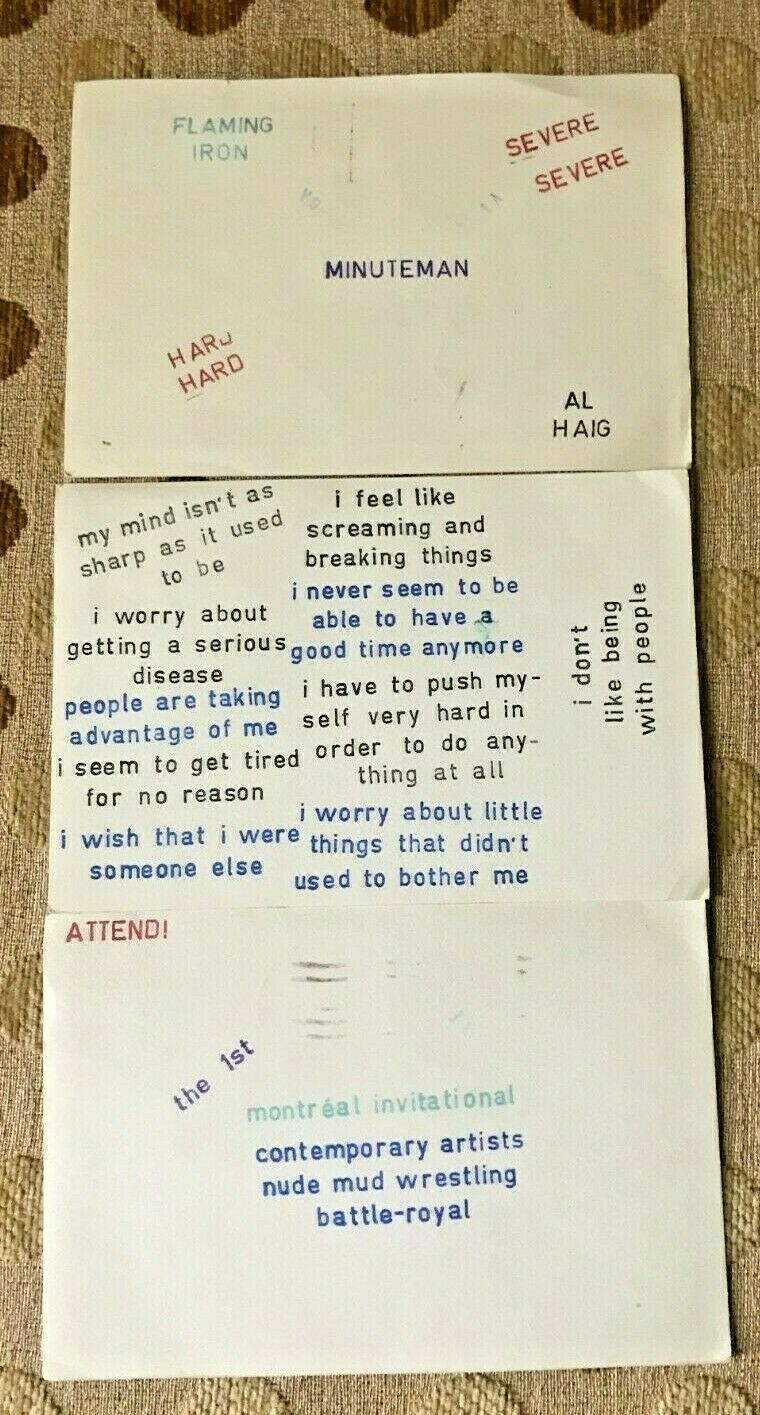 FLAMING
IRON
SEVERE
SEVERE
MINUTEMAN
HARD
HARD
AL
HAIG
my mind isn't as
sharp as it used
to be
i feel like
screaming and
breaking things
i worry about
getting a serious
disease
i never seem to be
able to have a
good time anymore
people are taking
advantage of me
i have to push my-
self very hard in
order to do any-
thing at all
i seem to get tired
for no reason
i wish that i were
someone else
i worry about little
things that didn't
used to bother me
i don't
like being
with people
ATTEND!
the 1st
montréal invitational
contemporary artists
nude mud wrestling
battle-royal